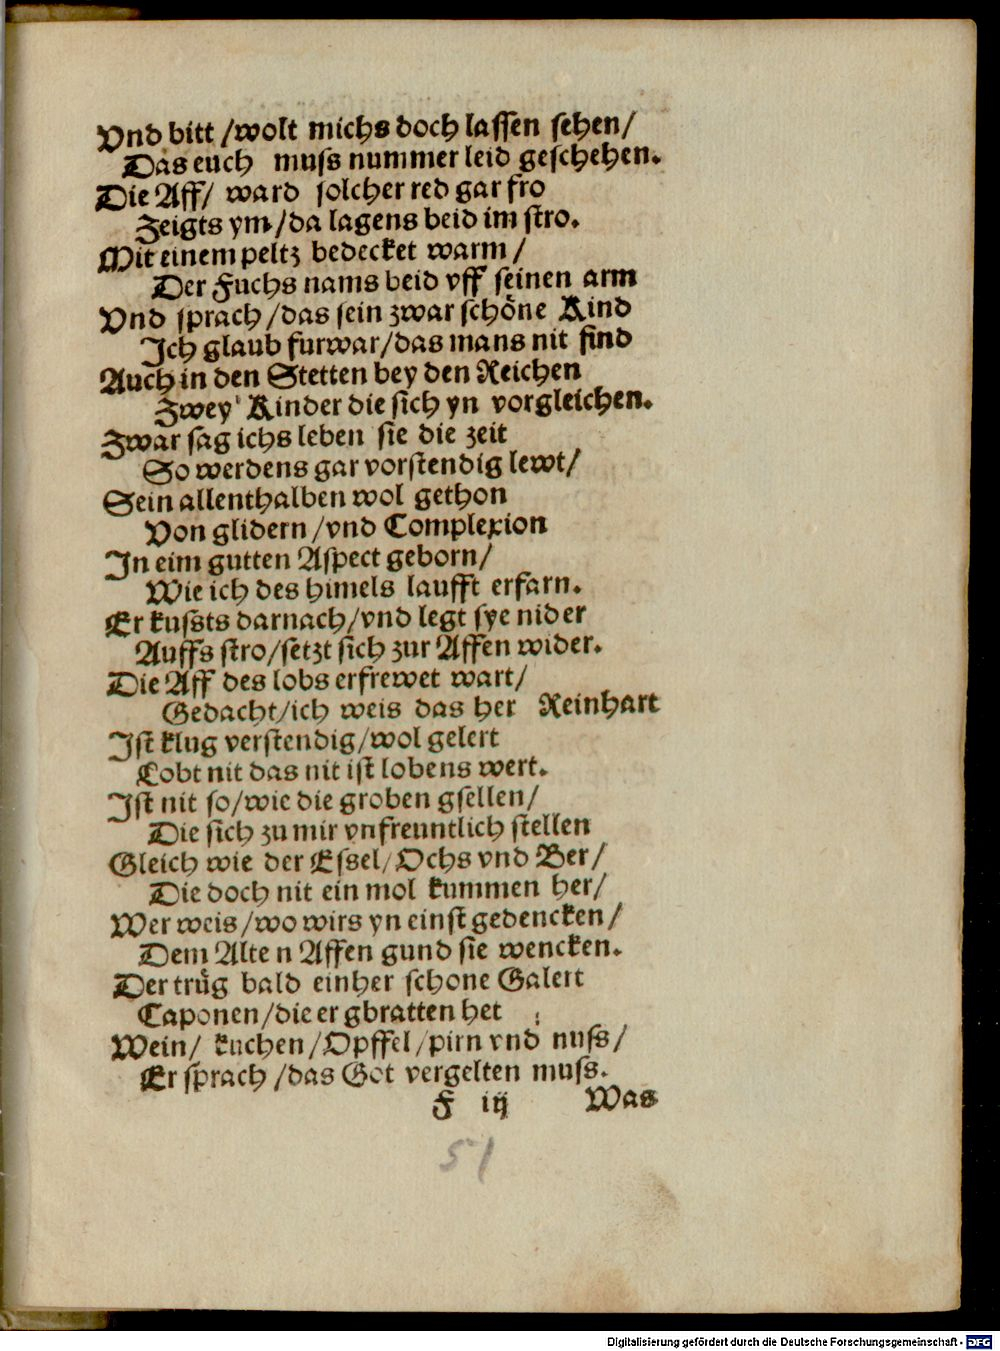 Vnd bitt /wolt michs doch lassen sehen/
Das euch muss nummer leid geschehen.
Die Aff/ ward solcher red gar fro
Zeigts ym/da lagens beid im stro.
Mit einem peltz bedecket warm /
Der Fuchs nams beid vff seinen arm
Vnd sprach /das sein zwar schöne Kind
Ich glaub furwar/das mans nit find
Auch in den Stetten bey den Reichen
Zwey Kinder die sich yn vorgleichen.
Zwar sag ichs leben sie die zeit
So werdens gar vorstendig lewt/
Sein allenthalben wol gethon
Von glidern /vnd Complexion
In eim gutten Aspect geborn/
Wie ich des himels laufft erfarn.
Er kussts darnach/vnd legt sye nider
Auffs stro/setzt sich zur Affen wider.
Die Aff des lobs erfrewet wart/
Gedacht/ich weis das her Reinhart
Ist klug verstendig/wol gelert
Lobt nit das nit ist lobens wert.
Ist nit so/wie die groben gsellen/
Die sich zu mir vnfreuntlich stellen
Gleich wie der Essel/Ochs vnd Ber/
Die doch nit ein mol kummen her/
Wer weis /wo wirs yn einst gedencken/
Dem Alte n Affen gund sie wencken.
Der trůg bald einher schone Galert
Caponen/die er gbratten het
Wein/ kuchen/Opffel/pirn vnd nuss/
Er sprach /das Got vergelten muss.
F iij Was
51
Digitalisierung gefördert durch die Deutsche Forschungsgemeinschaft - DFG